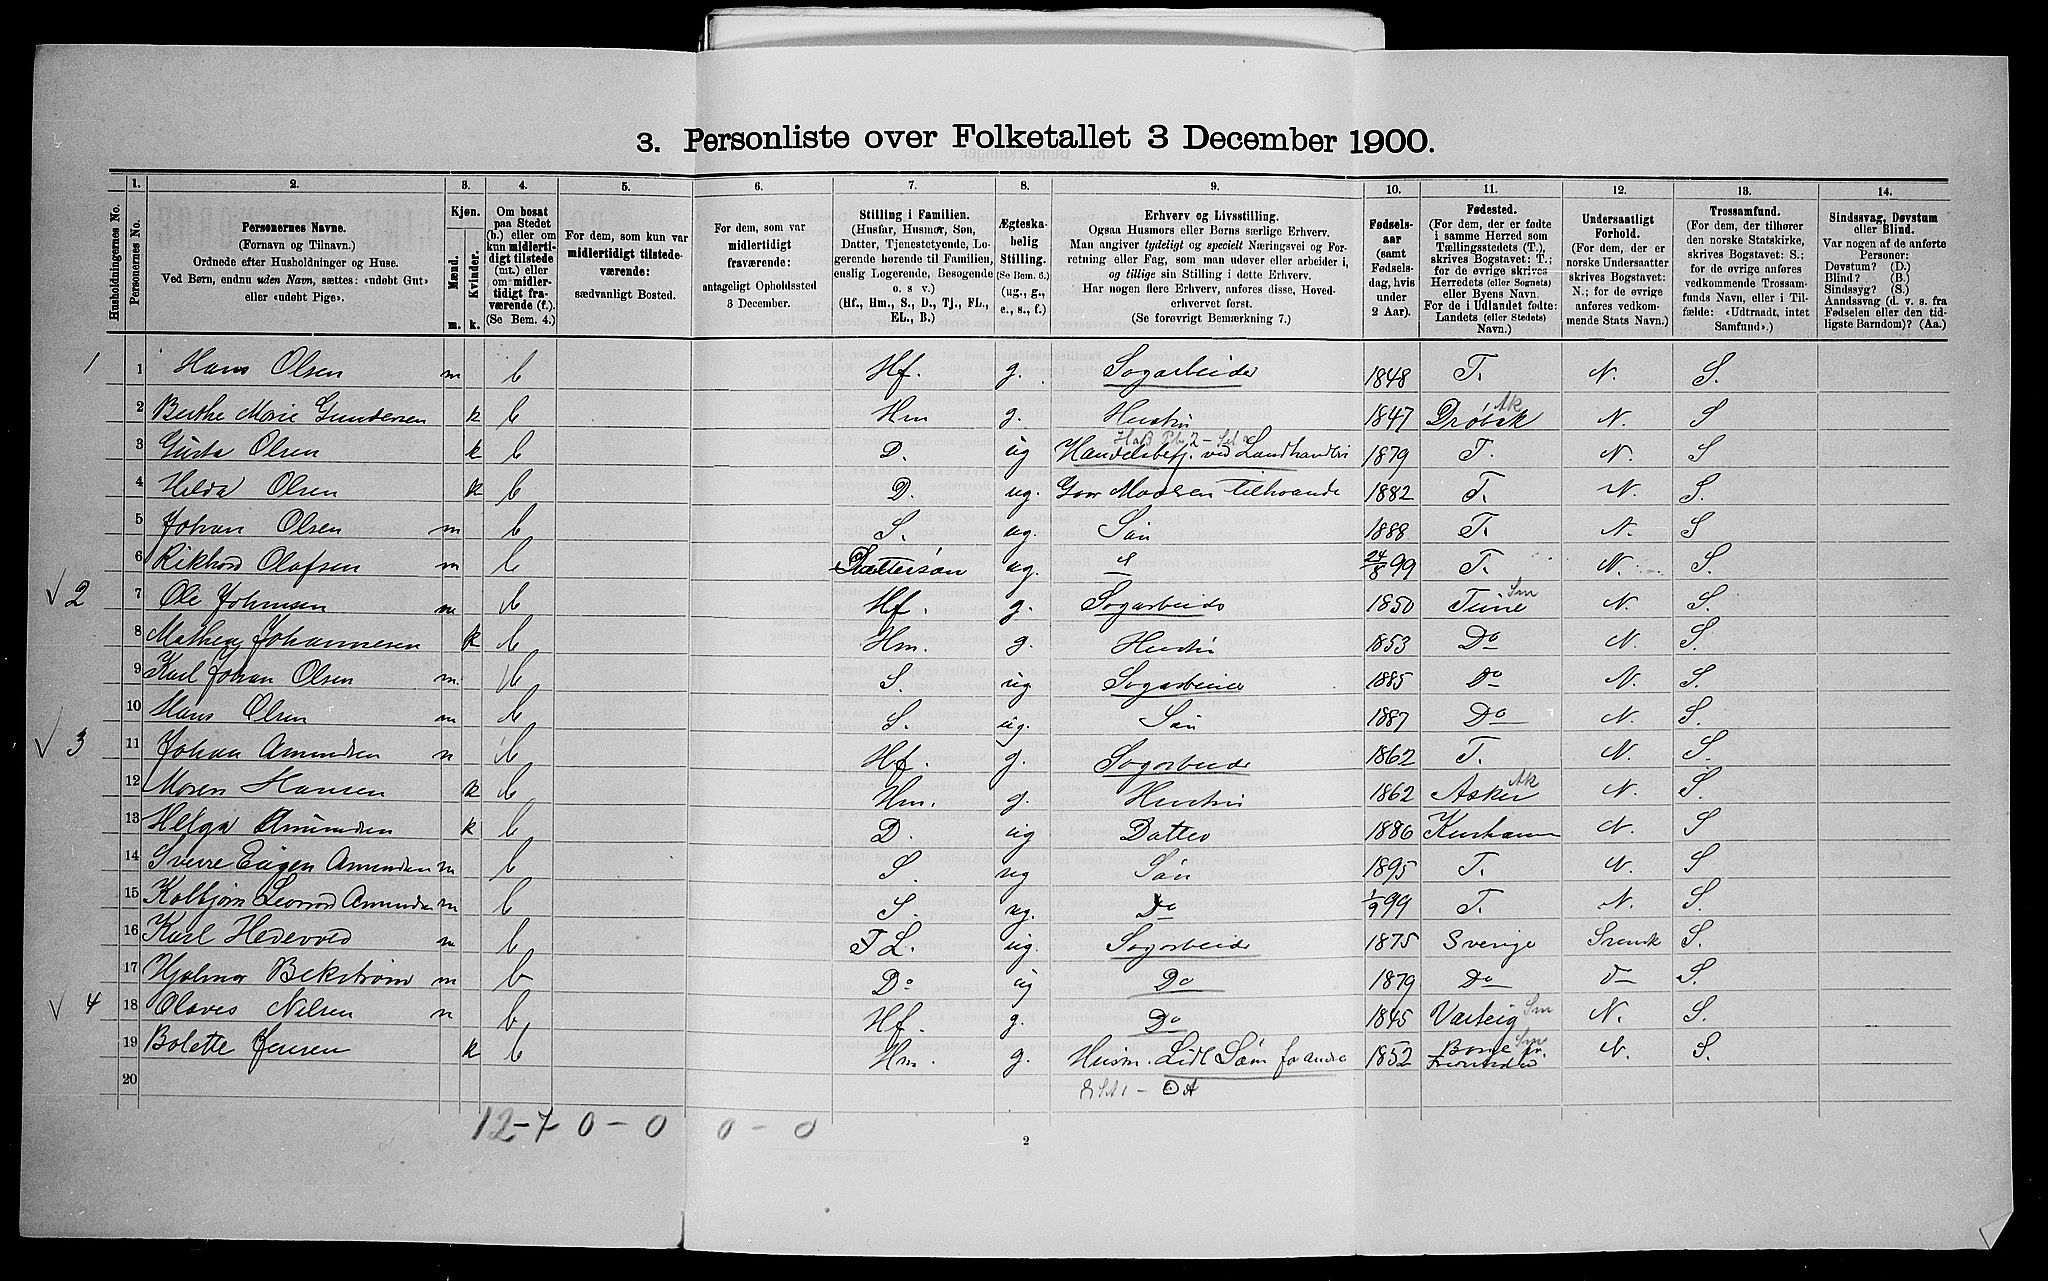 3. Personliste over Folketallet 3 December 1900.
Husholdningernes No.
1. Personernes No.
2. Personernes Navne. (Fornavn og Tilnavn.) Ordnede efter Husholdninger og Huse. Ved Børn, endnu uden Navn, sættes: «udøbt Gut» eller «udøbt Pige».
3. Kjøn. Mænd. m. Kvinder. k.
4. Om bosat paa Stedet (b.) eller om kun midlertidigt tilstede (mt.) eller om midlertidigt fraværende (f.). (Se Bem. 4.)
5. For dem, som kun var midlertidigt tilstedeværende: sædvanligt Bosted.
6. For dem, som var midlertidigt fraværende: antageligt Opholdssted 3 December.
7. Stilling i Familien. (Husfar, Husmor, Søn, Datter, Tjenestetyende, Logerende hørende til Familien, enslig Logerende, Besøgende o. s v.) (Hf., Hm., S., D., Tj., FL., EL., B.)
8. Ægteskabelig Stilling. (Se Bem. 6.) (ug., g., e., s., f.)
9. Erhverv og Livsstilling. Ogsaa Husmors eller Børns særlige Erhverv. Man angiver tydeligt og specielt Næringsvei og Forretning eller Fag, som man udøver eller arbeider i, og tillige sin Stilling i dette Erhverv. Har nogen flere Erhverv, anføres disse, Hovederhvervet først. (Se forøvrigt Bemærkning 7.)
10. Fødselsaar (samt Fødselsdag, hvis under 2 Aar).
11. Fødested. (For dem, der er fødte i samme Herred som Tællingsstedets (T.), skrives Bogstavet: T.; for de øvrige skrives Herredets (eller Sognets) eller Byens Navn. For de i Udlandet fødte: Landets (eller Stedets) Navn.)
12. Undersaatligt Forhold. (For dem, der er norske Undersaatter skrives Bogstavet: N.; for de øvrige anføres vedkommende Stats Navn.)
13. Trossamfund. (For dem, der tilhører den norske Statskirke, skrives Bogstavet: S.; for de øvrige anføres vedkommende Trossamfunds Navn, eller i Tilfælde: «Udtraadt, intet Samfund».)
14. Sindssvag, Døvstum eller Blind. Var nogen af de anførte Personer: Døvstum? (D.) Blind? (B.) Sindssyg? (S.) Aandssvag (d. v. s. fra Fødselen eller den tidligste Barndom)? (Aa.)
1 1 Hans Olsen m b Hf. g. Sagarbeider 1848 T. N. S.
2 Berthe Marie Gundersen k b Hm g. Hustru 1847 Drøbak Ak N. S
3 Gusta Olsen k b D. ug Handelsbetj. ved Landhandleri 1879 T. N. S
4 Hilda Olsen k b D. ug. Gaar Moderen tilhaande 1882 T. N. S.
5 Johan Olsen m b S. ug. Søn 1888 T. N. S
6 Rikhard Olafsen m b Dattersøn ug. 24/8 99 T. N. S.
√ 2 7 Ole Johnsen m b Hf. g. Sagarbeid 1850 Tune Sm N. S.
8 Mathea Johannesen k b Hm. g. Hustru 1853 Do N. S.
9 Karl Johan Olsen m. b S. ug Sagarbeider 1885 Do N. S.
10 Hans Olsen m b S. ug. Søn 1887 Do N. S.
√ 3 11 Johan Amundsen m b Hf. g. Sagarbeide 1862 T. N. S.
12 Maren Hansen k b Hm. g. Hustru 1862 Asker Ak N. S.
13 Helga Amundsen k b D. ug Datter 1886 N. S
14 Sverre Eugen Amundsen m b S. ug Søn 1895 T. N. S
15 Kolbjørn Amundsen m b S. ug. Do 1/9 99 T. N. S.
16 Karl Hedevold m b FL. ug. Sagarbeide 1875 Sverige Svensk S.
17 Hjalmar Bekstrøm m b Do ug Do 1879 Do Do S.
√ 4 18 Olaves Nilsen m b Hf. g. Do 1845 Varteig Sm N. S.
19 Bolette Jensen k b Hm. g. Husm. Lidt Søm for andre 1852 Borge Sm N. S.
20
12-7 0-0 0-0
2